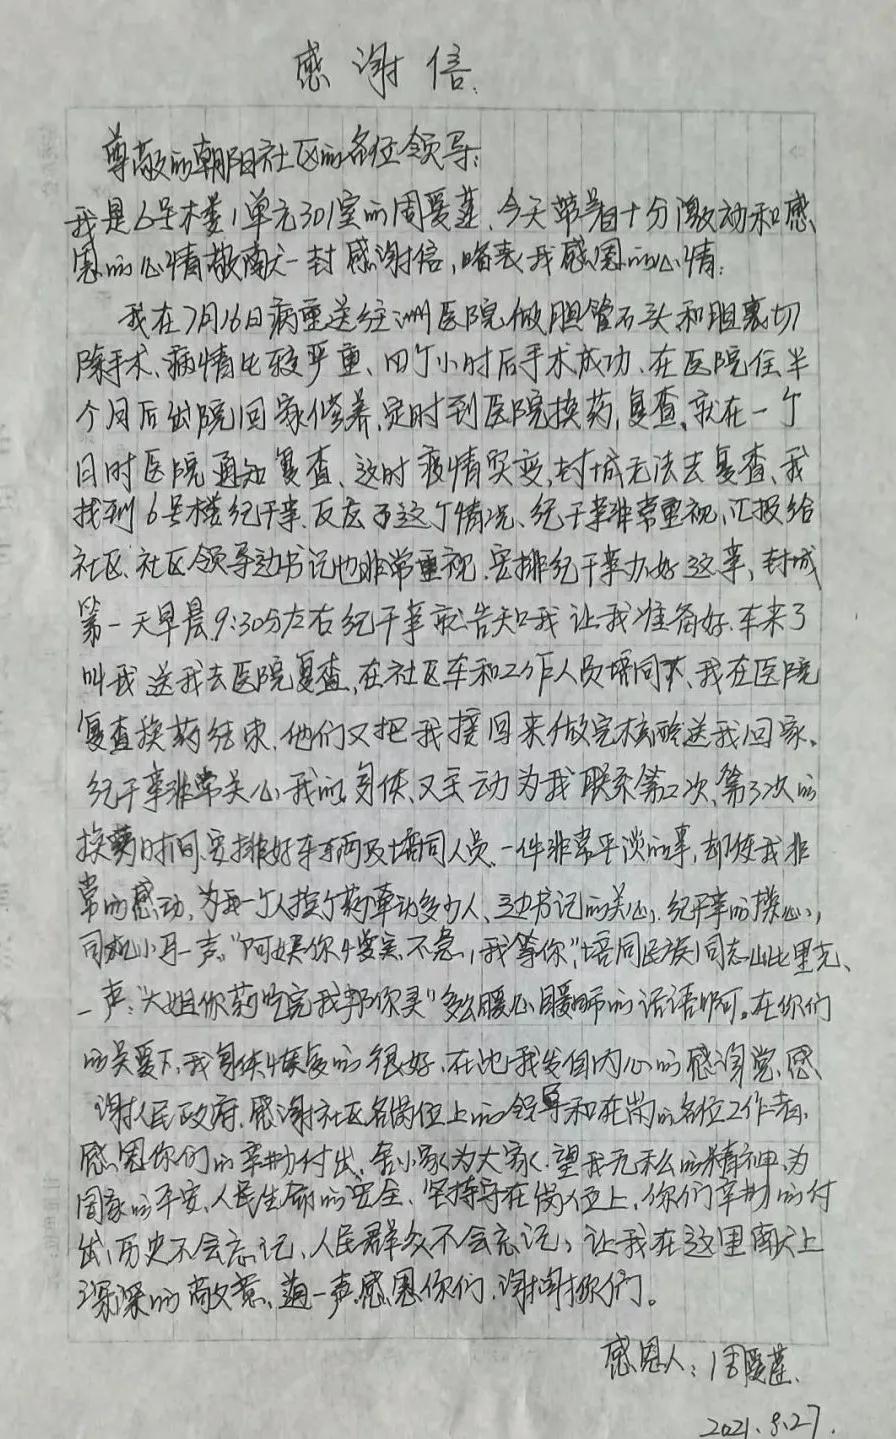 感谢信
尊敬的朝阳社区的各位领导:
我是6号楼1单元301室的周爱莲、今天带着十分激动和感
恩的心情敬献一封感谢信,略表我感恩的心情:
我在7月16日病重送往洲医院做胆管石头和胆囊切
除手术、病情比较严重、四个小时后手术成功、在医院住半
个月后出院回家修养,定时到医院换药,复查、就在一个
日时医院通知复查、这时疫情突变,封城无法去复查、我
找到6号楼纪干事、反应了这个情况、纪干事非常重视、汇报给
社区、社区领导边书记也非常重视、安排纪干事办好这事、封城
第一天早晨9:30分左右纪干事就告知我让我准备好、车来了
叫我送我去医院复查、在社区车和工作人员培同下、我在医院
复查换药结束、他们又把我接回来做完核酸送我回家。
纪干事非常关心我的身体、又主动为我联系第2次、第3次的
换药时间、安排好车辆及培同人员、一件非常平淡的事,却使我非
常的感动,为我一个人换个药牵动多少人、边书记的关心,纪干事的操心,
司机小马一声"阿姨你慢点不急,我等你",培同民族同志
一声:"大姐你药吃完我帮你买"多么暖心暖肺的话语啊。在你们
的关爱下,我身体恢复的很好、在此我发自内心的感谢党、感
谢人民政府、感谢社区各岗位上的领导和在岗的各位工作者、
感恩你们的辛勤付出、舍小家为大家、望我无私的精神、为
国家的平安、人民生命的安全、坚持守在岗位上、你们辛勤的付
出、历史不会忘记、人民群众不会忘记,让我在这里献上
深深的敬意、道一声感恩你们、谢谢你们。
感恩人:周爱莲、
2021.9.27.